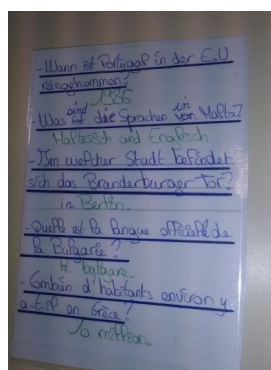 - Wann ist Portugal in der E.U
reingekommen?
1986
- Was sind die Sprachen in Malta?
Maltesisch und Englisch
- Im welcher Stadt befindet
sich das Branderburger Tor?
in Berlin.
- Quelle est la langue officielle de
la Bulgarie?
le bulgare.
- Combien d'habitants environ y
a-t-il en Grèce?
10 million.